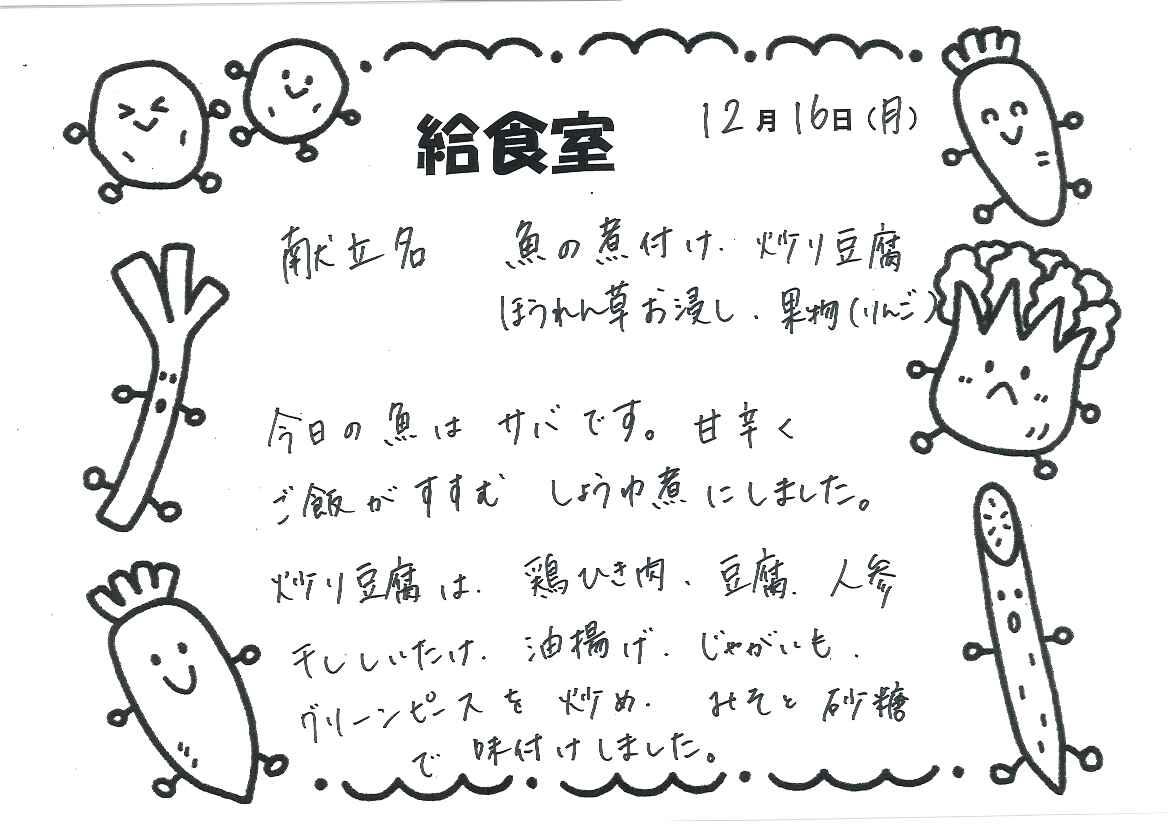 給食室
12月16日(月)
献立名 魚の煮付け、炒り豆腐
ほうれん草お浸し、果物(りんご)
今日の魚は サバです。甘辛く
ご飯がすすむ しょうゆ煮にしました。
炒り豆腐は、鶏ひき肉、豆腐、人参
干ししいたけ、油揚げ、じゃがいも、
グリーンピースを 炒め、みそと砂糖
で 味付けしました。